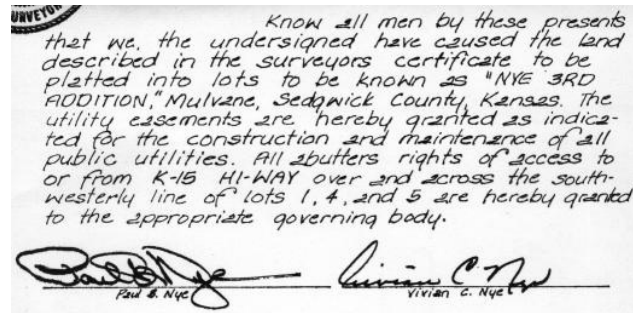 SURVEYOR
Know all men by these presents
that we, the undersigned have caused the land
described in the surveyors certificate to be
platted into lots to be known as "NYE 3RD
ADDITION," Mulvane, Sedgwick County, Kansas. The
utility easements are hereby granted as indica-
ted for the construction and maintenance of all
public utilities. All abutters rights of access to
or from K-15 HI-WAY over and across the south-
westerly line of lots 1, 4, and 5 are hereby granted
to the appropriate governing body.
Paul B. Nye Vivian C. Nye
Paul B. Nye Vivian C. Nye